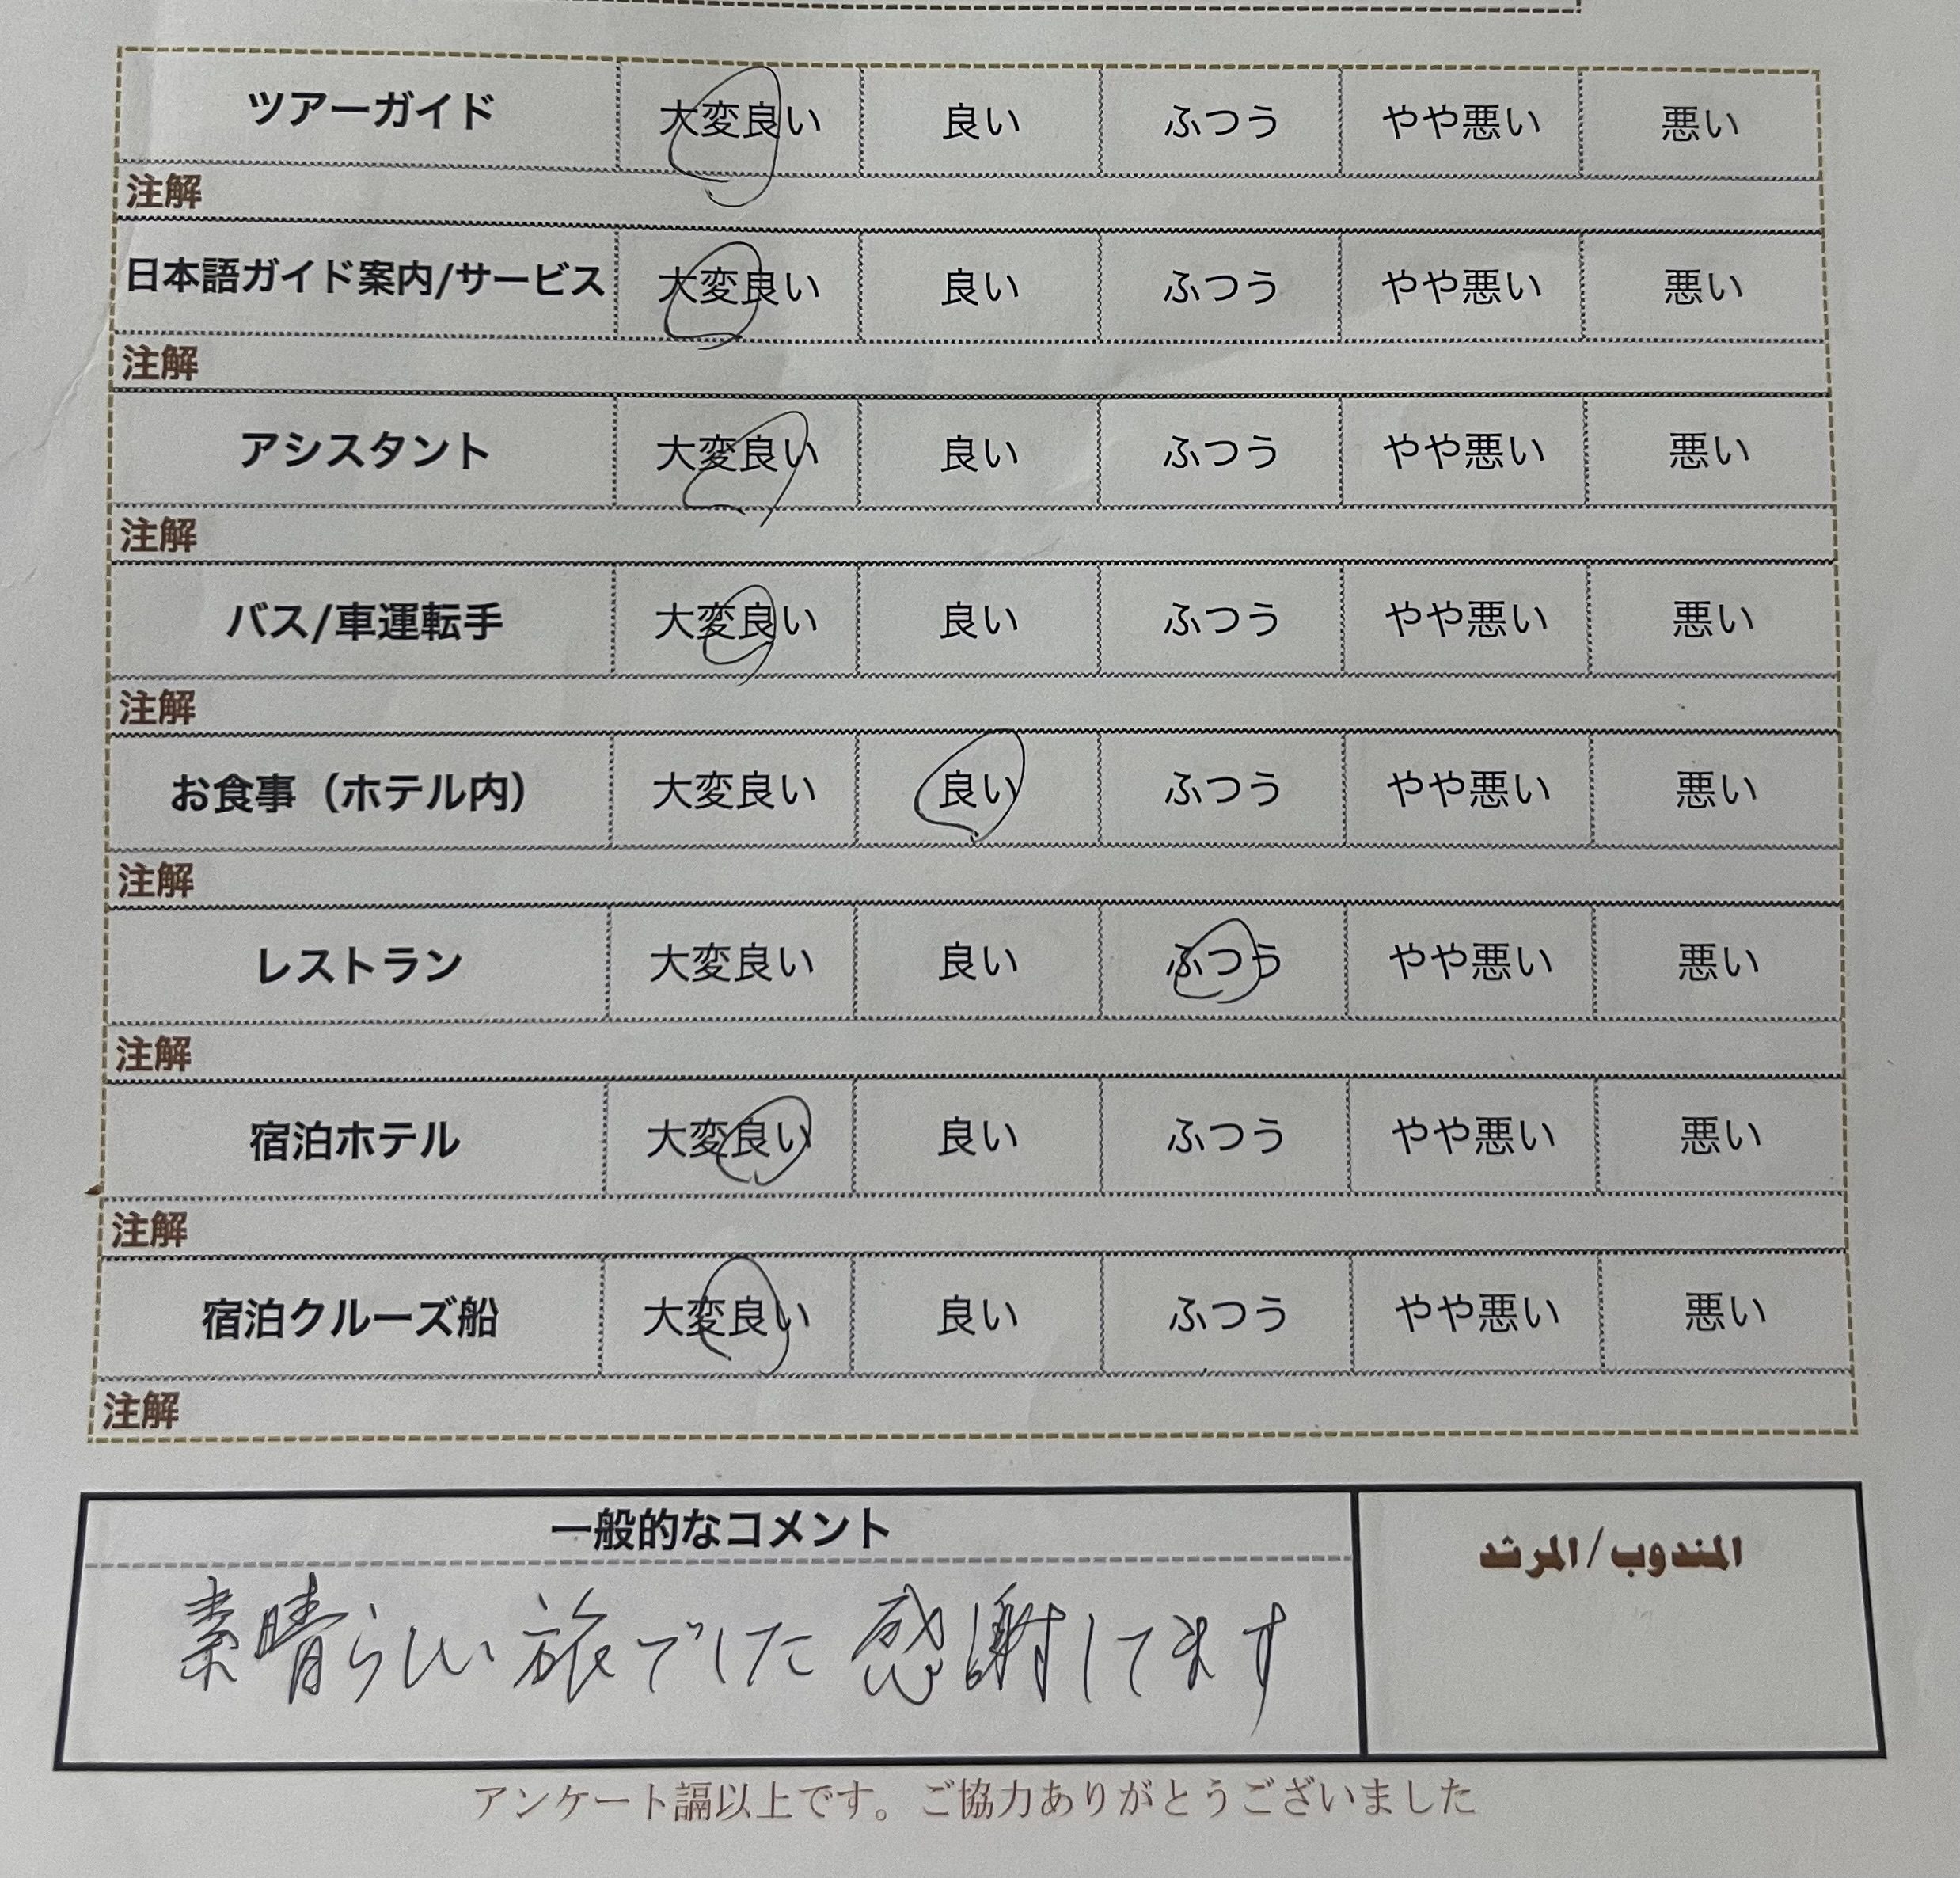 ツアーガイド 大変良い 良い ふつう やや悪い 悪い
注解
日本語ガイド案内/サービス 大変良い 良い ふつう やや悪い 悪い
注解
アシスタント 大変良い 良い ふつう やや悪い 悪い
注解
バス/車運転手 大変良い 良い ふつう やや悪い 悪い
注解
お食事（ホテル内） 大変良い 良い ふつう やや悪い 悪い
注解
レストラン 大変良い 良い ふつう やや悪い 悪い
注解
宿泊ホテル 大変良い 良い ふつう やや悪い 悪い
注解
宿泊クルーズ船 大変良い 良い ふつう やや悪い 悪い
注解
一般的なコメント
素晴らしい旅でした 感謝してます
المندوب/المرشد
アンケート譌以上です。ご協力ありがとうございました